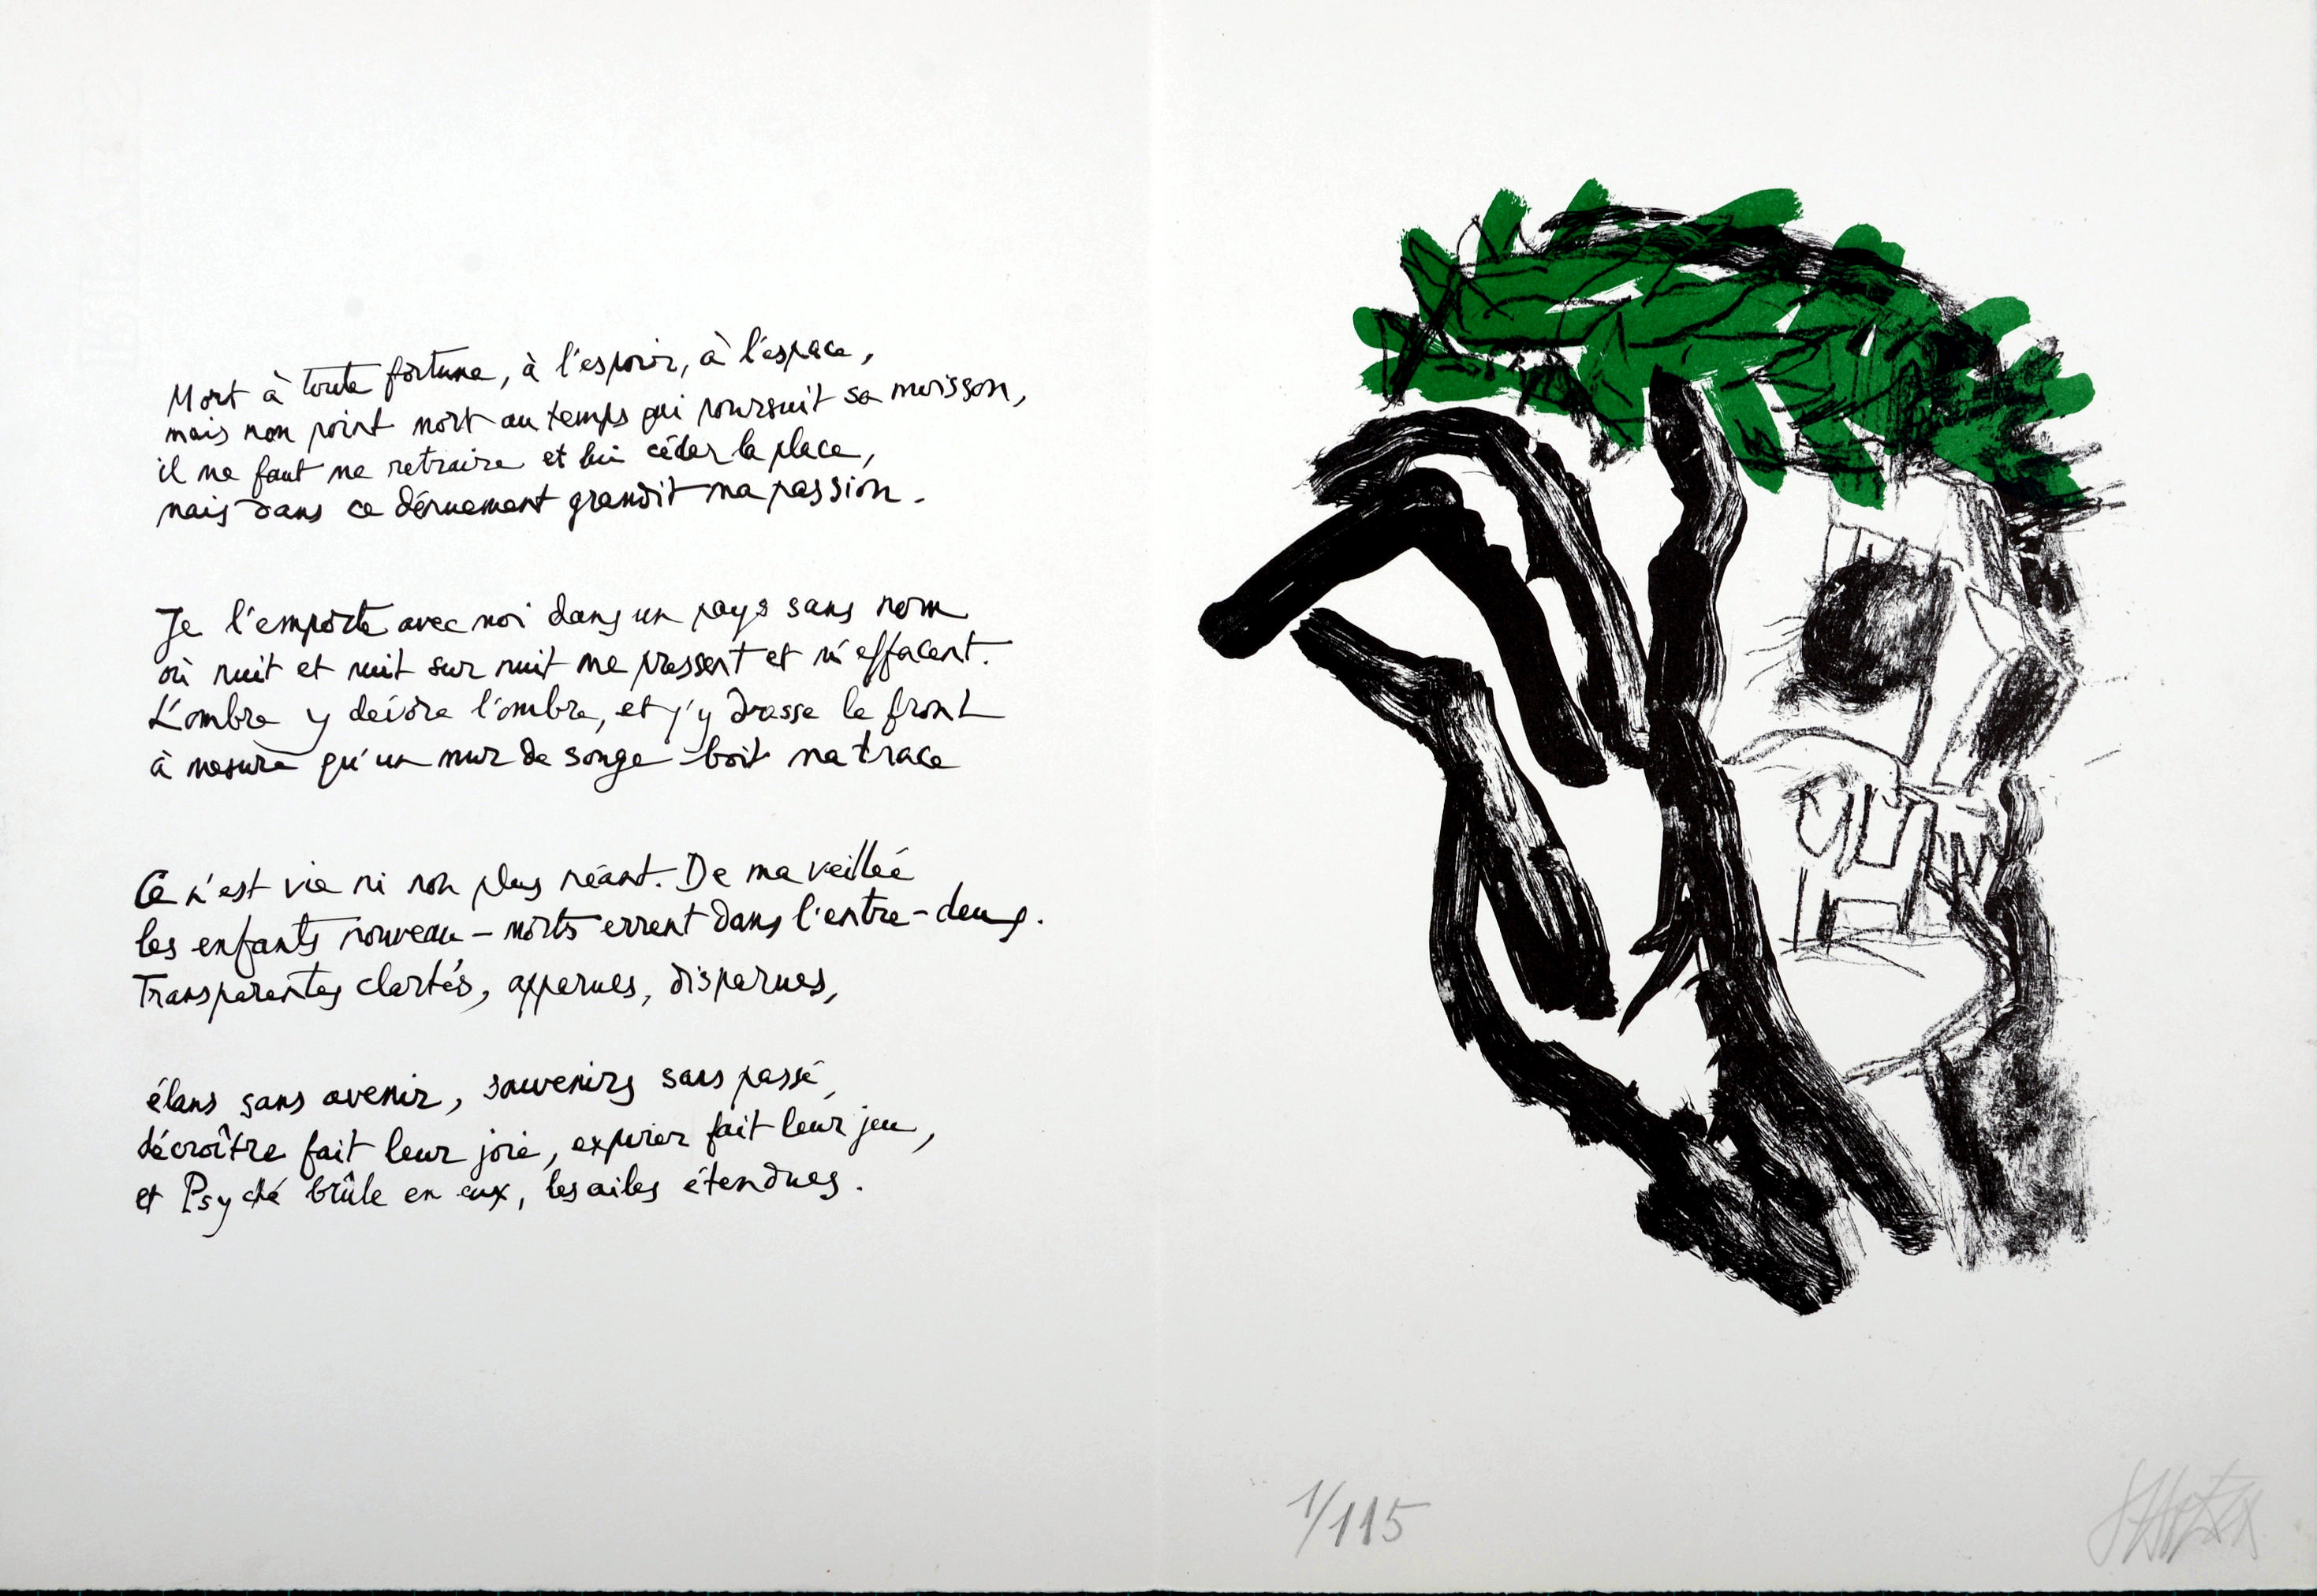 Mort à toute fortune, à l'espoir, à l'espace,
mais non point mort au temps qui poursuit sa moisson,
il me faut me retraire et lui céder la place,
mais dans ce dénuement grandit ma passion.
Je l'emporte avec moi dans un pays sans nom
où nuit et nuit sur nuit me pressent et m'effacent.
L'ombre y dévore l'ombre, et j'y dresse le front
à mesure qu'un mur de songe boit ma trace
Ce n'est vie ni non plus néant. De ma veillée
les enfants nouveau-morts errent dans l'entre-deux.
Transparentes clartés, apparues, disparues,
élans sans avenir, souvenirs sans passé,
décroître fait leur joie, expirer fait leur jeu,
et Psyché brûle en eux, les ailes étendues.
1/115